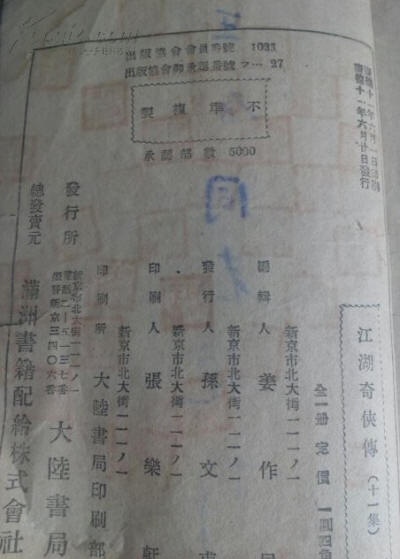 康德十一年六月一日印刷
康德十一年六月廿日發行
出版協會會員番號 1023
出版協會御承認番號 ラ…27
不準複製
承認部數 5000
江湖奇俠傳（十一集）
全一册 定價 一圓四角
新京市北大街一一一ノ一
編輯人 姜作
新京市北大街一一一ノ一
發行人 孫文
新京市北大街一一一ノ一
印刷人 張樂軒
印刷所 大陸書局印刷部
新京市北大街一一一ノ一
電話 2—五一三七番
振替新京三四〇六番
發行所 大陸書局
總發賣元 滿洲書籍配給株式會社